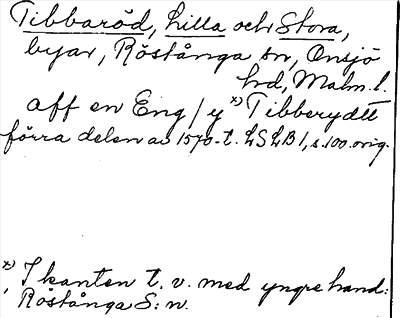 Tibbaröd, Lilla och Stora,
byar, Röstånga sn, Onsjö
hd, Malm. l.
aff en Eng / y x) Tibberydtt
förra delen av 1570-t. LSLB 1, s. 100. orig.
x) I kanten t. v. med yngre hand:
Röstånga S:n.